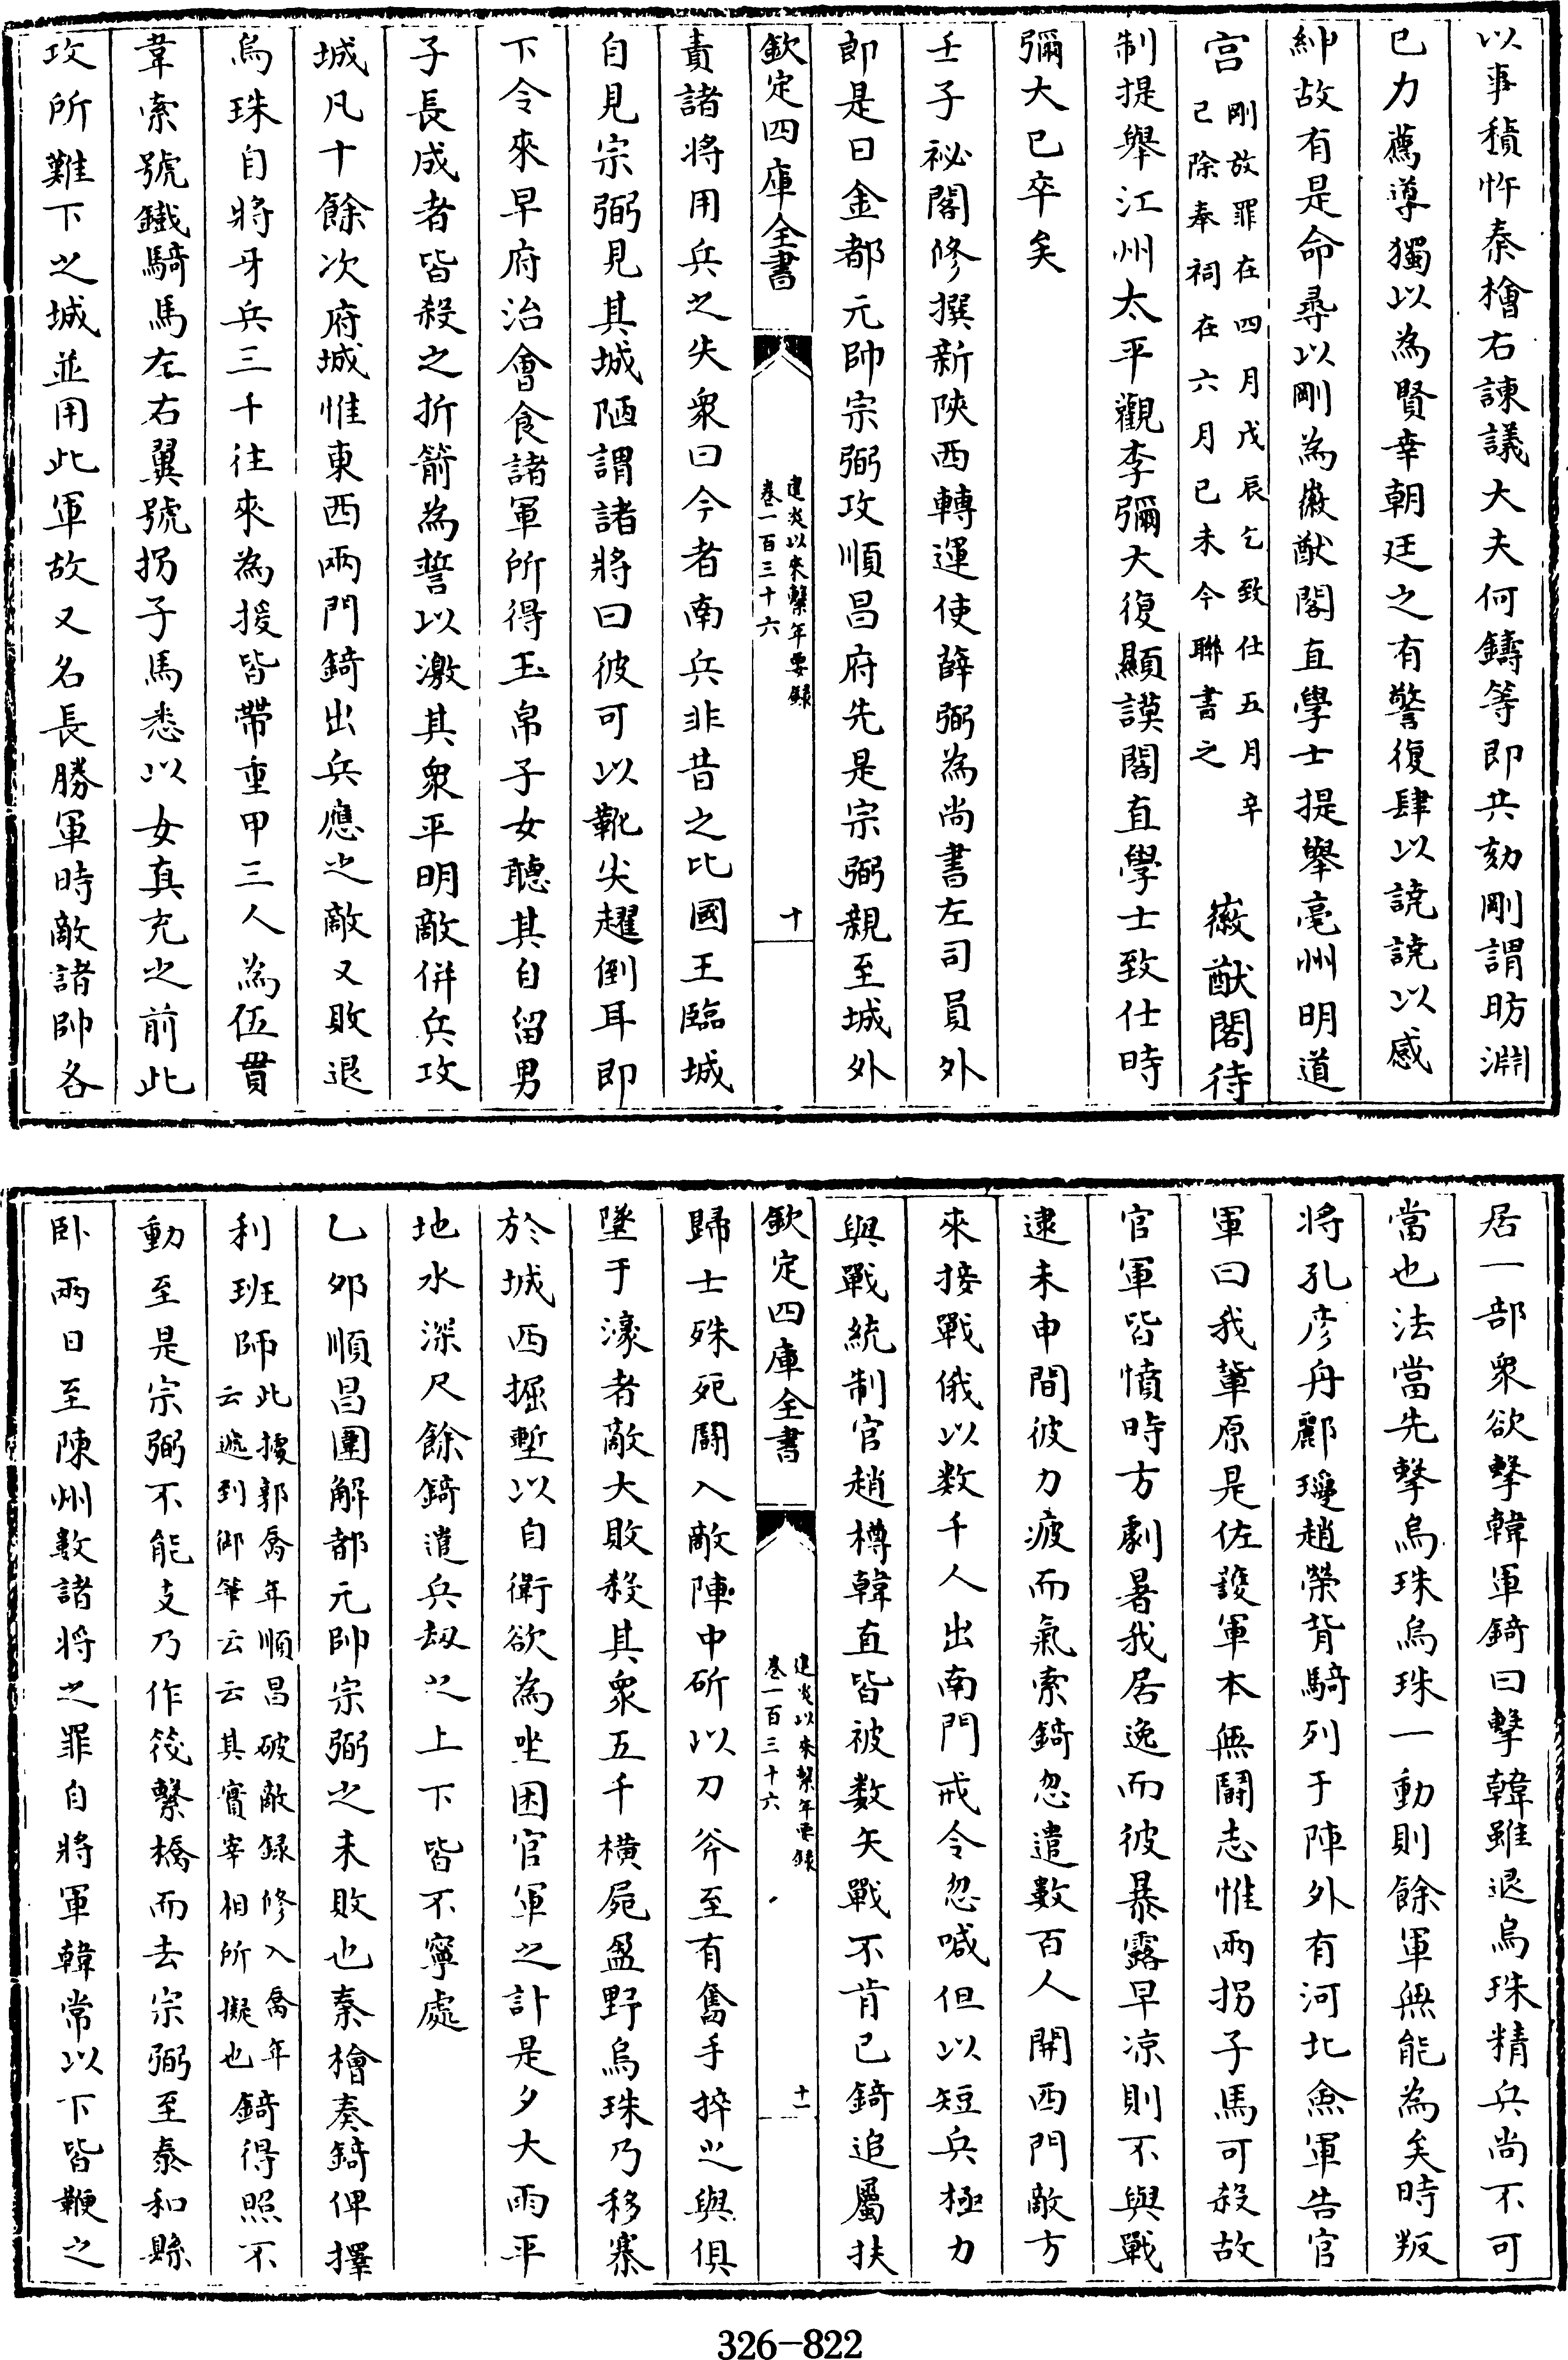 以事積忤秦檜右諫議大夫何鑄等即共劾剛謂昉淵
已力薦導獨以為賢幸朝廷之有警復肆以譊譊以惑
紳故有是命尋以剛為徽猷閣直學士提舉亳州明道
宫剛放罪在四月戊辰乞致仕五月辛
己除奉祠在六月己未今聯書之徽猷閣待
制提舉江州太平觀李彌大復顯謨閣直學士致仕時
彌大已卒矣
壬子祕閣修撰新陝西轉運使薛弼為尚書左司員外
郎是日金都元帥宗弼攻順昌府先是宗弼親至城外
欽定四庫全書
建炎以來繫年要錄
卷一百三十六
十
責諸將用兵之失衆曰今者南兵非昔之比國王臨城
自見宗弼見其城陋謂諸將曰彼可以靴尖趯倒耳即
下令來早府治會食諸軍所得玉帛子女聽其自留男
子長成者皆殺之折箭為誓以激其衆平明敵併兵攻
城凡十餘次府城惟東西兩門錡出兵應之敵又敗退
烏珠自將牙兵三千往來為援皆帶重甲三人為伍貫
韋索號鐵騎馬左右翼號拐子馬悉以女真充之前此
攻所難下之城並用此軍故又名長勝軍時敵諸帥各
居一部衆欲擊韓軍錡曰擊韓雖退烏珠精兵尚不可
當也法當先擊烏珠烏珠一動則餘軍無能為矣時叛
將孔彦舟酈瓊趙榮背騎列于陣外有河北僉軍告官
軍曰我輩原是佐護軍本無鬬志惟兩拐子馬可殺故
官軍皆憤時方劇暑我居逸而彼暴露早凉則不與戰
逮未申間彼力疲而氣索錡忽遣數百人開西門敵方
來接戰俄以数千人出南門戒令忽喊但以短兵極力
與戰統制官趙樽韓直皆被数矢戰不肯已錡追屬扶
欽定四庫全書
建炎以來繫年要錄
卷一百三十六
十一
歸士殊死鬬入敵陣中斫以刀斧至有奮手捽之與俱
墜于濠者敵大敗殺其衆五千横屍盈野烏珠乃移寨
於城西掘塹以自衛欲為坐困官軍之計是夕大雨平
地水深尺餘錡遣兵刼之上下皆不寧處
乙夘順昌圍解都元帥宗弼之未敗也秦檜奏錡俾擇
利班師此據郭喬年順昌破敵録修入喬年
云遞到御筆云云其實宰相所擬也錡得照不
動至是宗弼不能支乃作筏繫橋而去宗弼至泰和縣
卧兩日至陳州數諸將之罪自將軍韓常以下皆鞭之
326-822